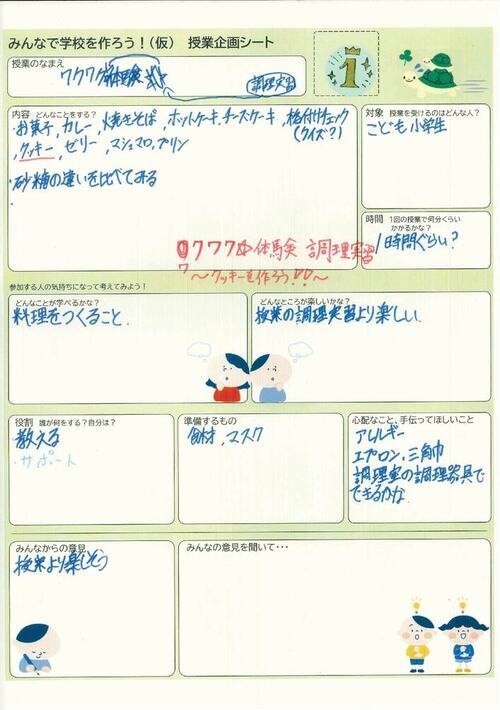 みんなで学校を作ろう！(仮) 授業企画シート
授業のなまえ
ワクワク体験
調理実習
内容 どんなことをする？
お菓子,カレー,焼きそば,ホットケーキ,チーズケーキ,格付けチェック
(クイズ？)
クッキー,ゼリー,マシュマロ,プリン
・砂糖の違いを比べてみる
対象 授業を受けるのはどんな人？
こども小学生
時間 1回の授業で何分くらい
かかるかな？
1時間ぐらい？
体験 調理実習
〜クッキーを作ろう!!〜
参加する人の気持ちになって考えてみよう！
どんなことが学べるかな？
料理をつくること.
どんなところが楽しいかな？
授業の調理実習より楽しい.
役割 誰が何をする？自分は？
教える
サポート
準備するもの
食材,マスク
心配なこと、手伝ってほしいこと
アレルギー
エプロン、三角巾
調理室の調理器具で
できるかな
みんなからの意見
授業より楽しそう
みんなの意見を聞いて・・・
1